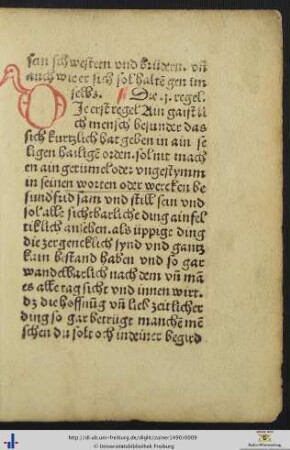 sein schwestern vnd brüdern. vñ
auch wie er sich sol haltē gen im
selbs. Die .j. regel.
DIe erst regel Ain gaistli
ch mensch besunder das
sich kurtzlich hat geben in ain se
ligen hailigē orden. sol nit mach
en ain getümel oder vngestymm
in seinen worten oder wercken be
sund fridsam vnd still sein vnd
sol alle sichtbarliche ding ainfel
tiklich ansehen. als üppige ding
die zergencklich synd vnd gantz
kain bestand haben vnd so gar
wandelbarlich nach dem vñ mā
es alle tag sicht vnd innen wirt.
dz die hoffnūg vñ lieb zeitlicher
ding so gar betrügt manchē mē
schen du solt och in deiner begird
http://dl.ub.uni-freiburg.de/diglit/zainer1490/0009
© Universitätsbibliothek Freiburg
Baden-Württemberg